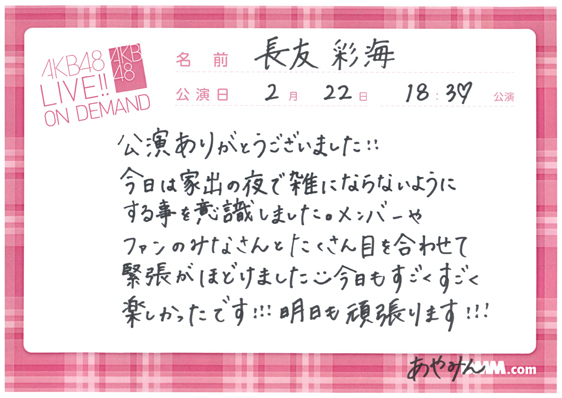 AKB48
LIVE!!
ON DEMAND
AKB
48
名 前 長友 彩海
公演日 2月 22日 18:30 公演
公演ありがとうございました!!
今日は家出の夜で雑にならないように
する事を意識しました。メンバーや
ファンのみなさんとたくさん目を合わせて
緊張がほどけました 今日もすごくすごく
楽しかったです!!! 明日も頑張ります!!!
あやみん
MM.com